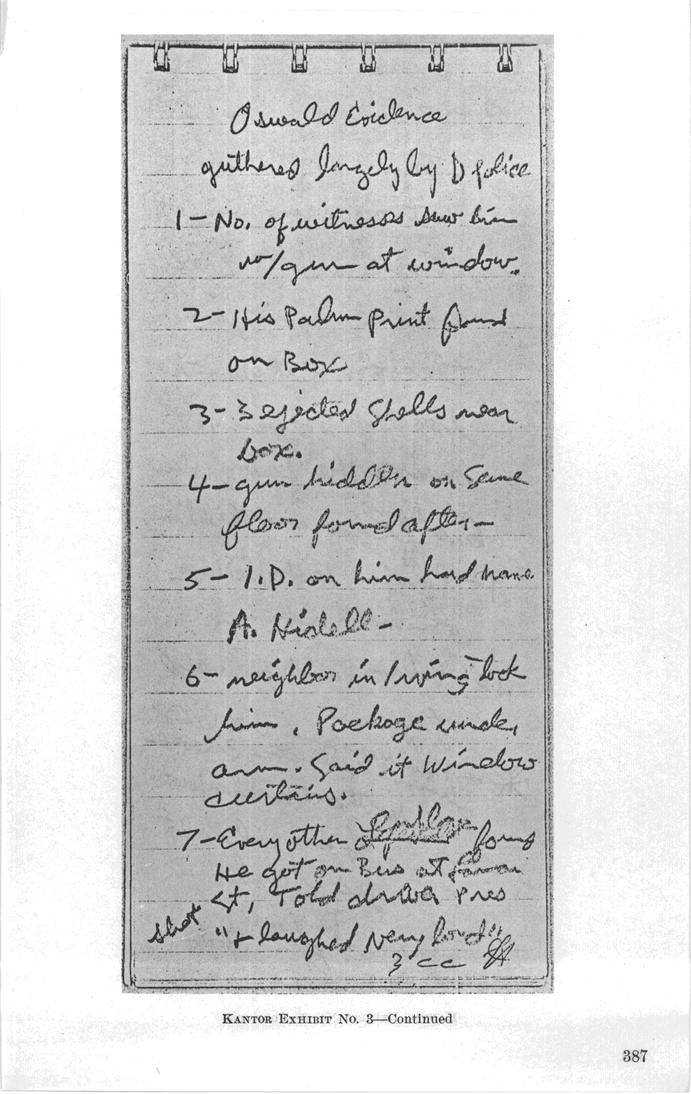 Oswald Evidence
guthered largely by D police
1 - No. of witnesses saw him
w/gun at window.
2 - His Palm Print found
on Box
3 - 3 ejected shells near
box.
4 - gun hidden on same
floor found after -
5 - I.D. on him had name
A. Hidell -
6 - neighbor in Irving took
him. Package under
arm. Said it Window
curtains.
7 - Every other found
He got on Bus at Lamar
St, Told driver Pres
shot "& laughed very loud"
3 cc
KANTOR EXHIBIT No. 3—Continued
387